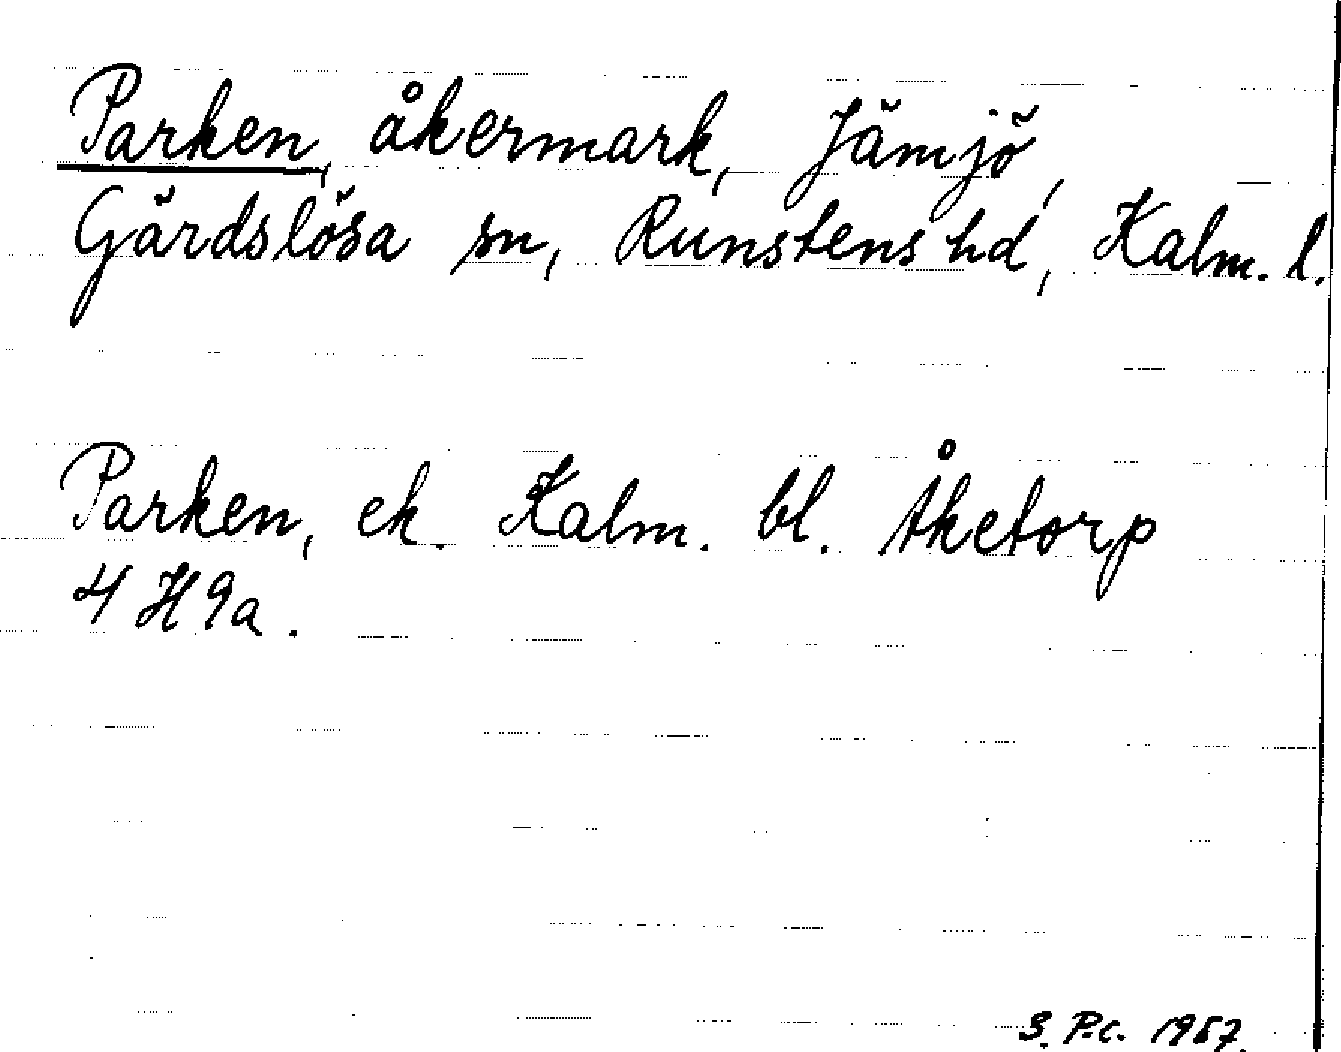 Parken, åkermark, Jämjö,
Gärdslösa sn, Runstens hd, Kalm. l.
Parken, ek. Kalm. bl. Åketorp
4 H 9a.
S. P.c. 1957.